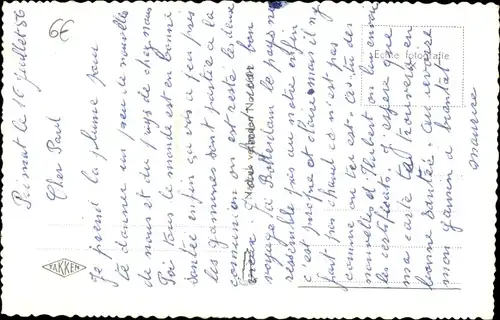 6E
Pirmat le 16 juillet 56
Cher Paul
Je prend la plume pour
te donner un peu de nouvelle
de nous et du pays de chez nous
Ici tous le monde est en bonne
santé enfin ça vis a peu près
les gammes sont partie a la
communion on est resté les deux
fait bon
voyage à Rotterdam le pays ne
ressemble pas au notre enfin
c'est propre et plaise mais il ny
fait pas chaud ce n'est pas
comme on ter est-as tu des
nouvelles d'Hubert on lui envoie
les certificats. J'espère que
ma carte te trouvera en
bonne santée. au revoire
mon gamin a bientôt
Maurice
Echte fotografie
TAKKEN